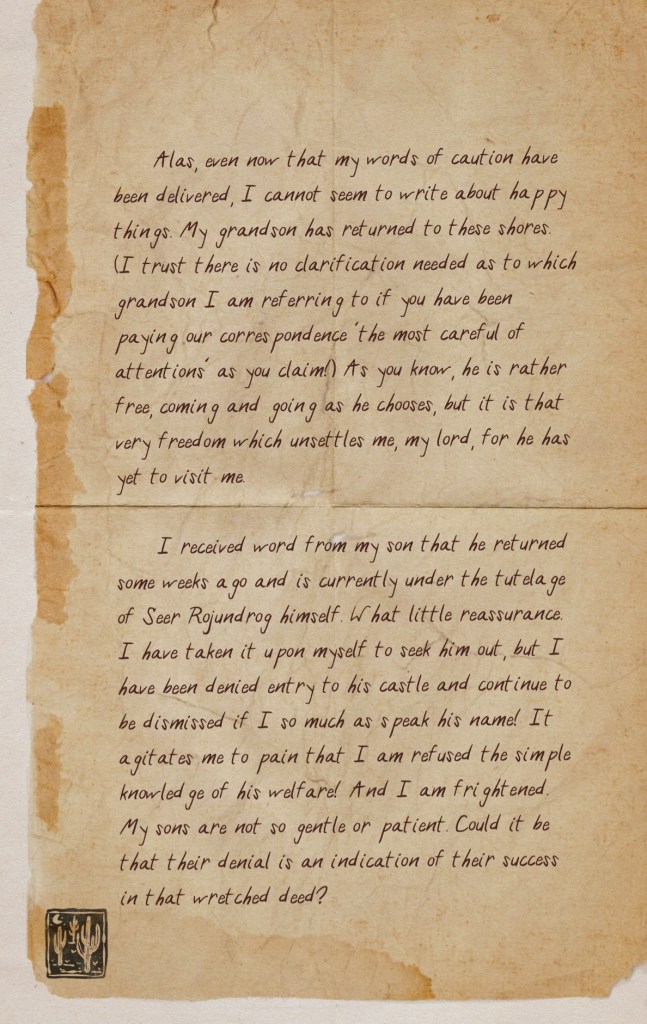 Alas, even now that my words of caution have
been delivered, I cannot seem to write about happy
things. My grandson has returned to these shores.
(I trust there is no clarification needed as to which
grandson I am referring to if you have been
paying our correspondence 'the most careful of
attentions' as you claim!) As you know, he is rather
free, coming and going as he chooses, but it is that
very freedom which unsettles me, my lord, for he has
yet to visit me.
I received word from my son that he returned
some weeks ago and is currently under the tutelage
of Seer Rojundrog himself. What little reassurance.
I have taken it upon myself to seek him out, but I
have been denied entry to his castle and continue to
be dismissed if I so much as speak his name! It
agitates me to pain that I am refused the simple
knowledge of his welfare! And I am frightened.
My sons are not so gentle or patient. Could it be
that their denial is an indication of their success
in that wretched deed?